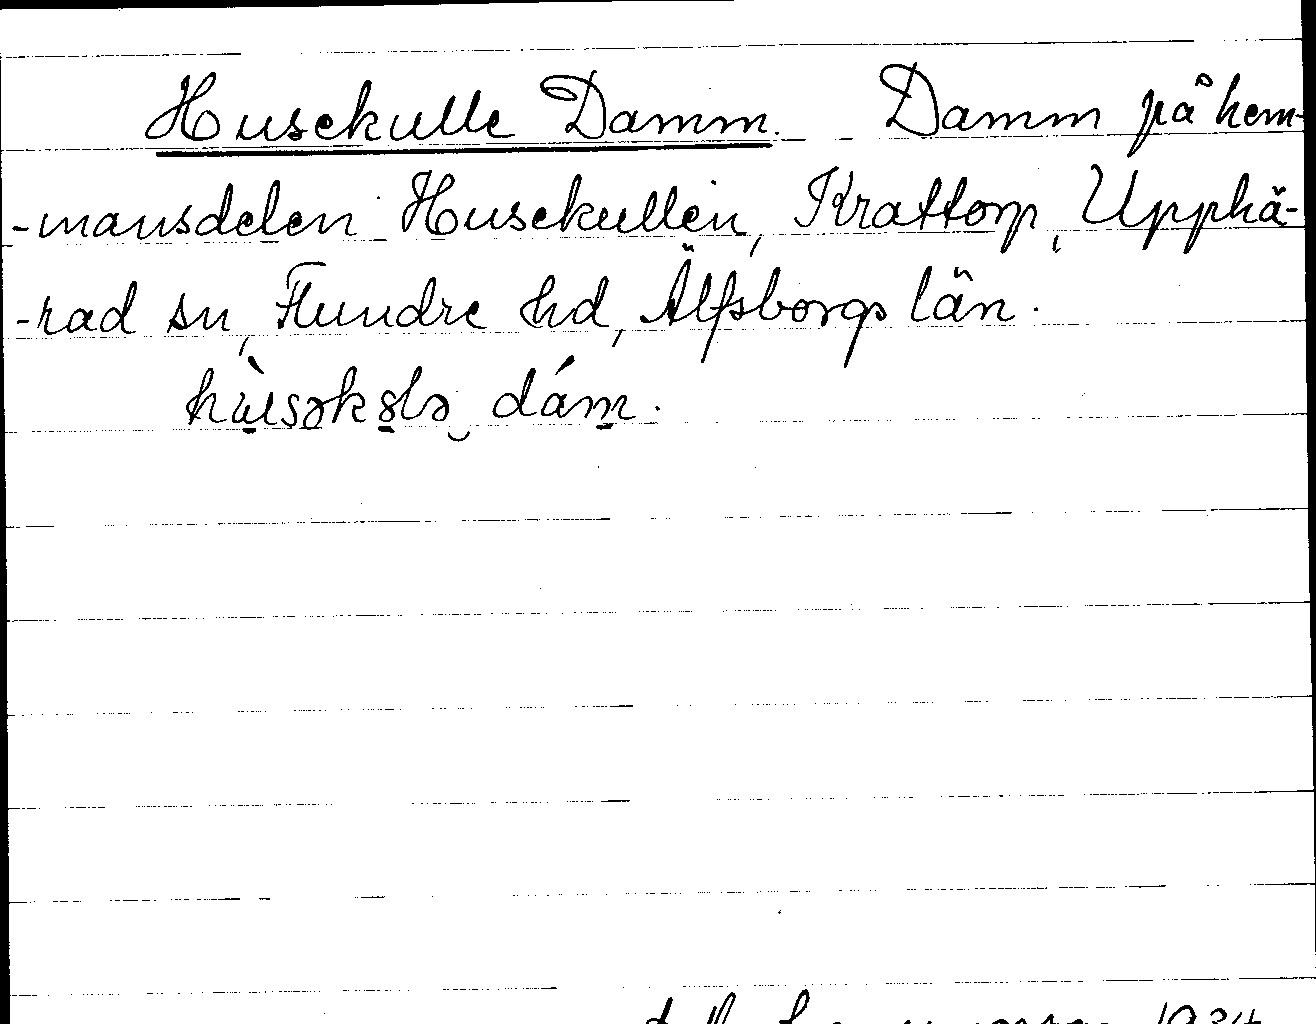 Husekulle Damm. Damm på hem-
-mansdelen Husekullen, Krattorp, Upphä-
-rad sn, Flundre hd, Älfsborgs län.
hù̱səkɞ̱lə‿dám̱.
1934